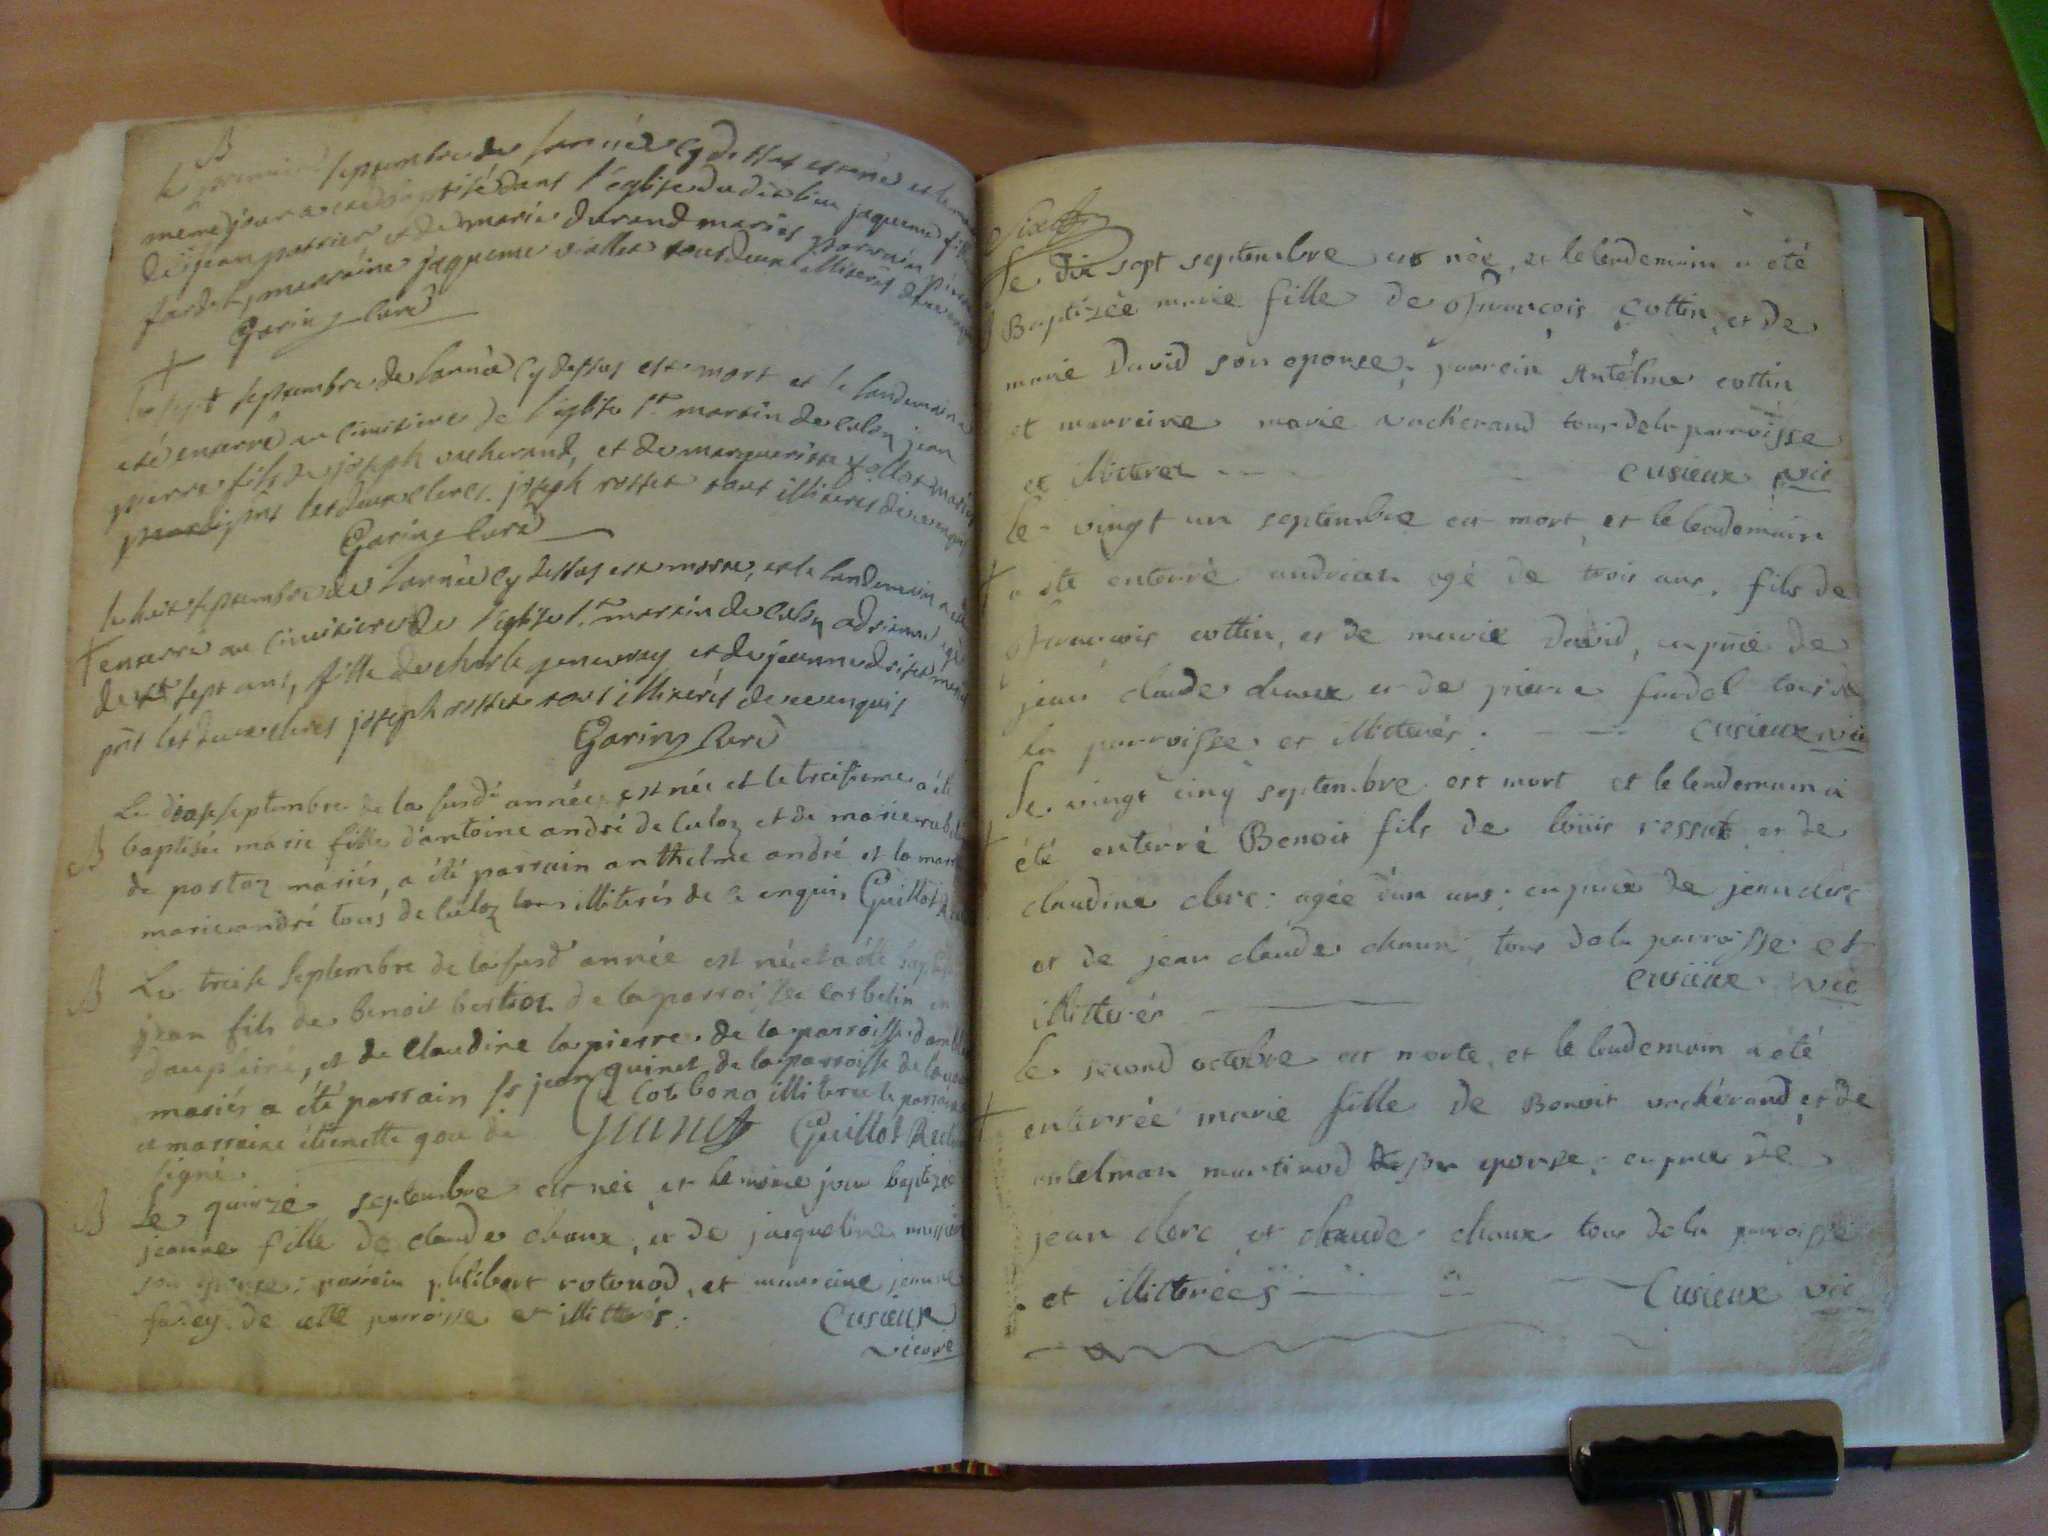 B
le premier septembre de l'année cy dessus est née et le
même jour a été baptisé dans l'église dudit lieu jaqueme fille
de jean perrier et de marie durand mariés parrain pierre
fardel, marraine jaqueme viallet tous deux illiterés de ce enquis
Garin curé
+
le sept septembre de l'année cy dessus est mort et le landemain a
été enterré au cimitiere de l'église st martin de culoz jean
pierre fils de joseph vacherand, et de marguerite follet mariés
pñs les deux clercs joseph rosset tous illiterés de ce enquis
Garin curé
le huit septembre de l'année cy dessus est morte, et le landemain a été
+ enterré au cimitiere de l'église st martin de culoz adrienne agé
de sept ans, fille de charle genevray et de jeanne drisel mariés
pñs les deux clercs joseph rosset tous illiterés de ce enquis
Garin curé
Le dix septembre de la susd année est née et le treisieme a été
B baptisée marie fille d'antoine andré de culoz et de marie
de postaz mariés, a été parrain anthelme andré et la marr
marie andré tous de culoz tous illiterés de ce enquis Guillot
B Le treise septembre de la susd année est né et a été bap
jean fils de benoit bertior de la parroisse corbelin en
daupliiné, et de Claudine la pierre de la parroisse d'am
mariés a été parrain sr jean quinet de la parroisse de
et marraine étienette gou de Cotobona illiterée le parrain
signé. quinet Guillot Rect
B Le quinzé septembre est neé et le même jour baptizée
jeanne fille de claude chaux, et de jacqueline
son epouse: parrein philibert rotonod, et marreine jeanne
farley de cette parroisse et illitterés.
Cusieux
vicaire
Sixt
Le dix sept septembre est née, et le lendemain a été
B Baptizée marie fille de francois Cottin, et de
marie David son epouse; parrein Antelme cottin
et marreine marie vacherand tous de la parroisse
et illiteres Cusieux vic
Le vingt un septembre est mort, et le lendemain
+ a été enterré andrian agé de trois ans, fils de
francois cottin, et de marie David, en pñce de
jean claude chaux et de pierre fardel tous de
la parroisse et illitterés. Cusieux vic
Le vingt cinq septembre est mort et le lendemain a
+ été enterré Benoit fils de louis rosset et de
claudine clerc: agée d'un ans: en pñce de jean clerc
et de jean claude chaux, tous de la parroisse et
illitterés Cusieux vic
Le second octobre est morte, et le lendemain a été
+ enterrée marie fille de Benoit vachérand et de
antelman martinod sa epouse: en pñce de
jean clerc et claude chaux tous de la parroisse
et illitterées Cusieux vic